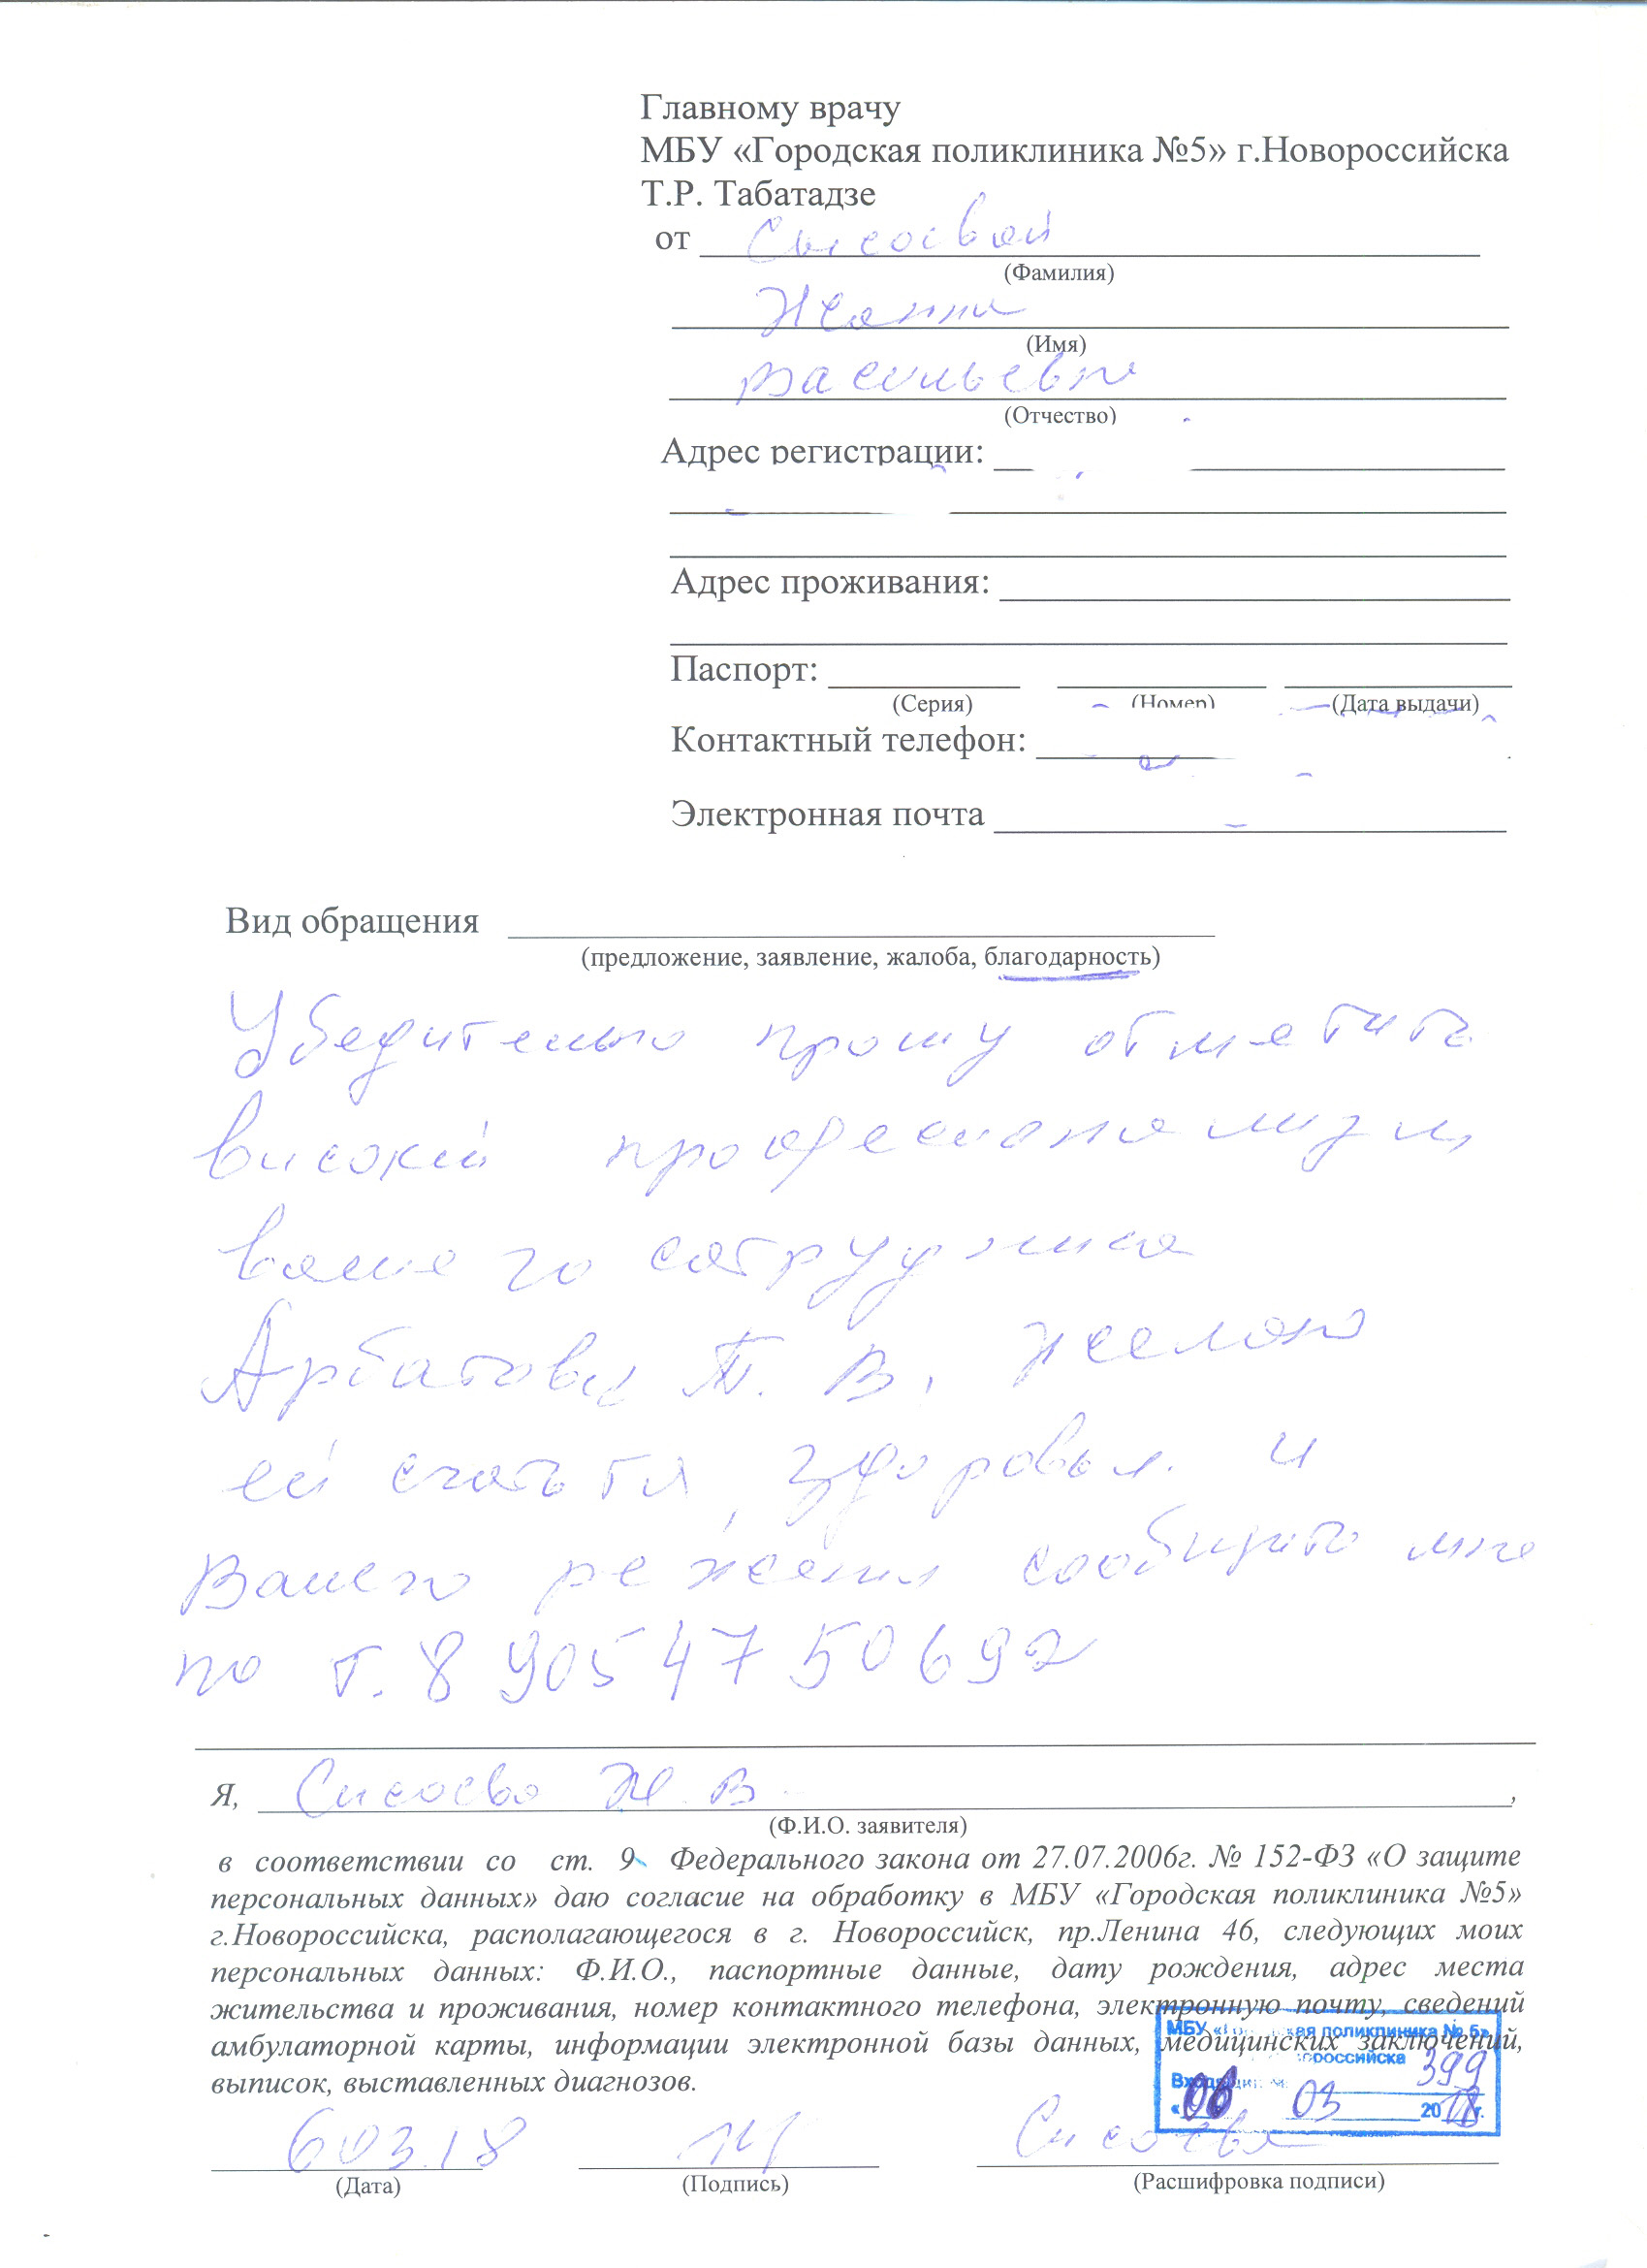 Главному врачу
МБУ «Городская поликлиника №5» г.Новороссийска
Т.Р. Табатадзе
от Сысоевой
(Фамилия)
Жанны
(Имя)
Васильевны
(Отчество)
Адрес регистрации:
Адрес проживания:
Паспорт:
(Серия) (Номер) (Дата выдачи)
Контактный телефон:
Электронная почта
Вид обращения
(предложение, заявление, жалоба, благодарность)
Убедительно прошу отметить
высокий профессионализм
вашего сотрудника
Арбатову Т. В. Желаю
ей счастья, здоровья. и
Вашего решения сообщить мне
по т. 8 905 47 50692
Я, Сысоева Ж. В. ,
(Ф.И.О. заявителя)
в соответствии со ст. 9 Федерального закона от 27.07.2006г. № 152-ФЗ «О защите
персональных данных» даю согласие на обработку в МБУ «Городская поликлиника №5»
г.Новороссийска, располагающегося в г. Новороссийск, пр.Ленина 46, следующих моих
персональных данных: Ф.И.О., паспортные данные, дату рождения, адрес места
жительства и проживания, номер контактного телефона, электронную почту, сведений
амбулаторной карты, информации электронной базы данных, медицинских заключений,
выписок, выставленных диагнозов.
МБУ «Городская поликлиника № 5»
г. Новороссийска
Входящий № 399
« 06 03 2018 г.
6 03.18 Сысоева
(Дата) (Подпись) (Расшифровка подписи)